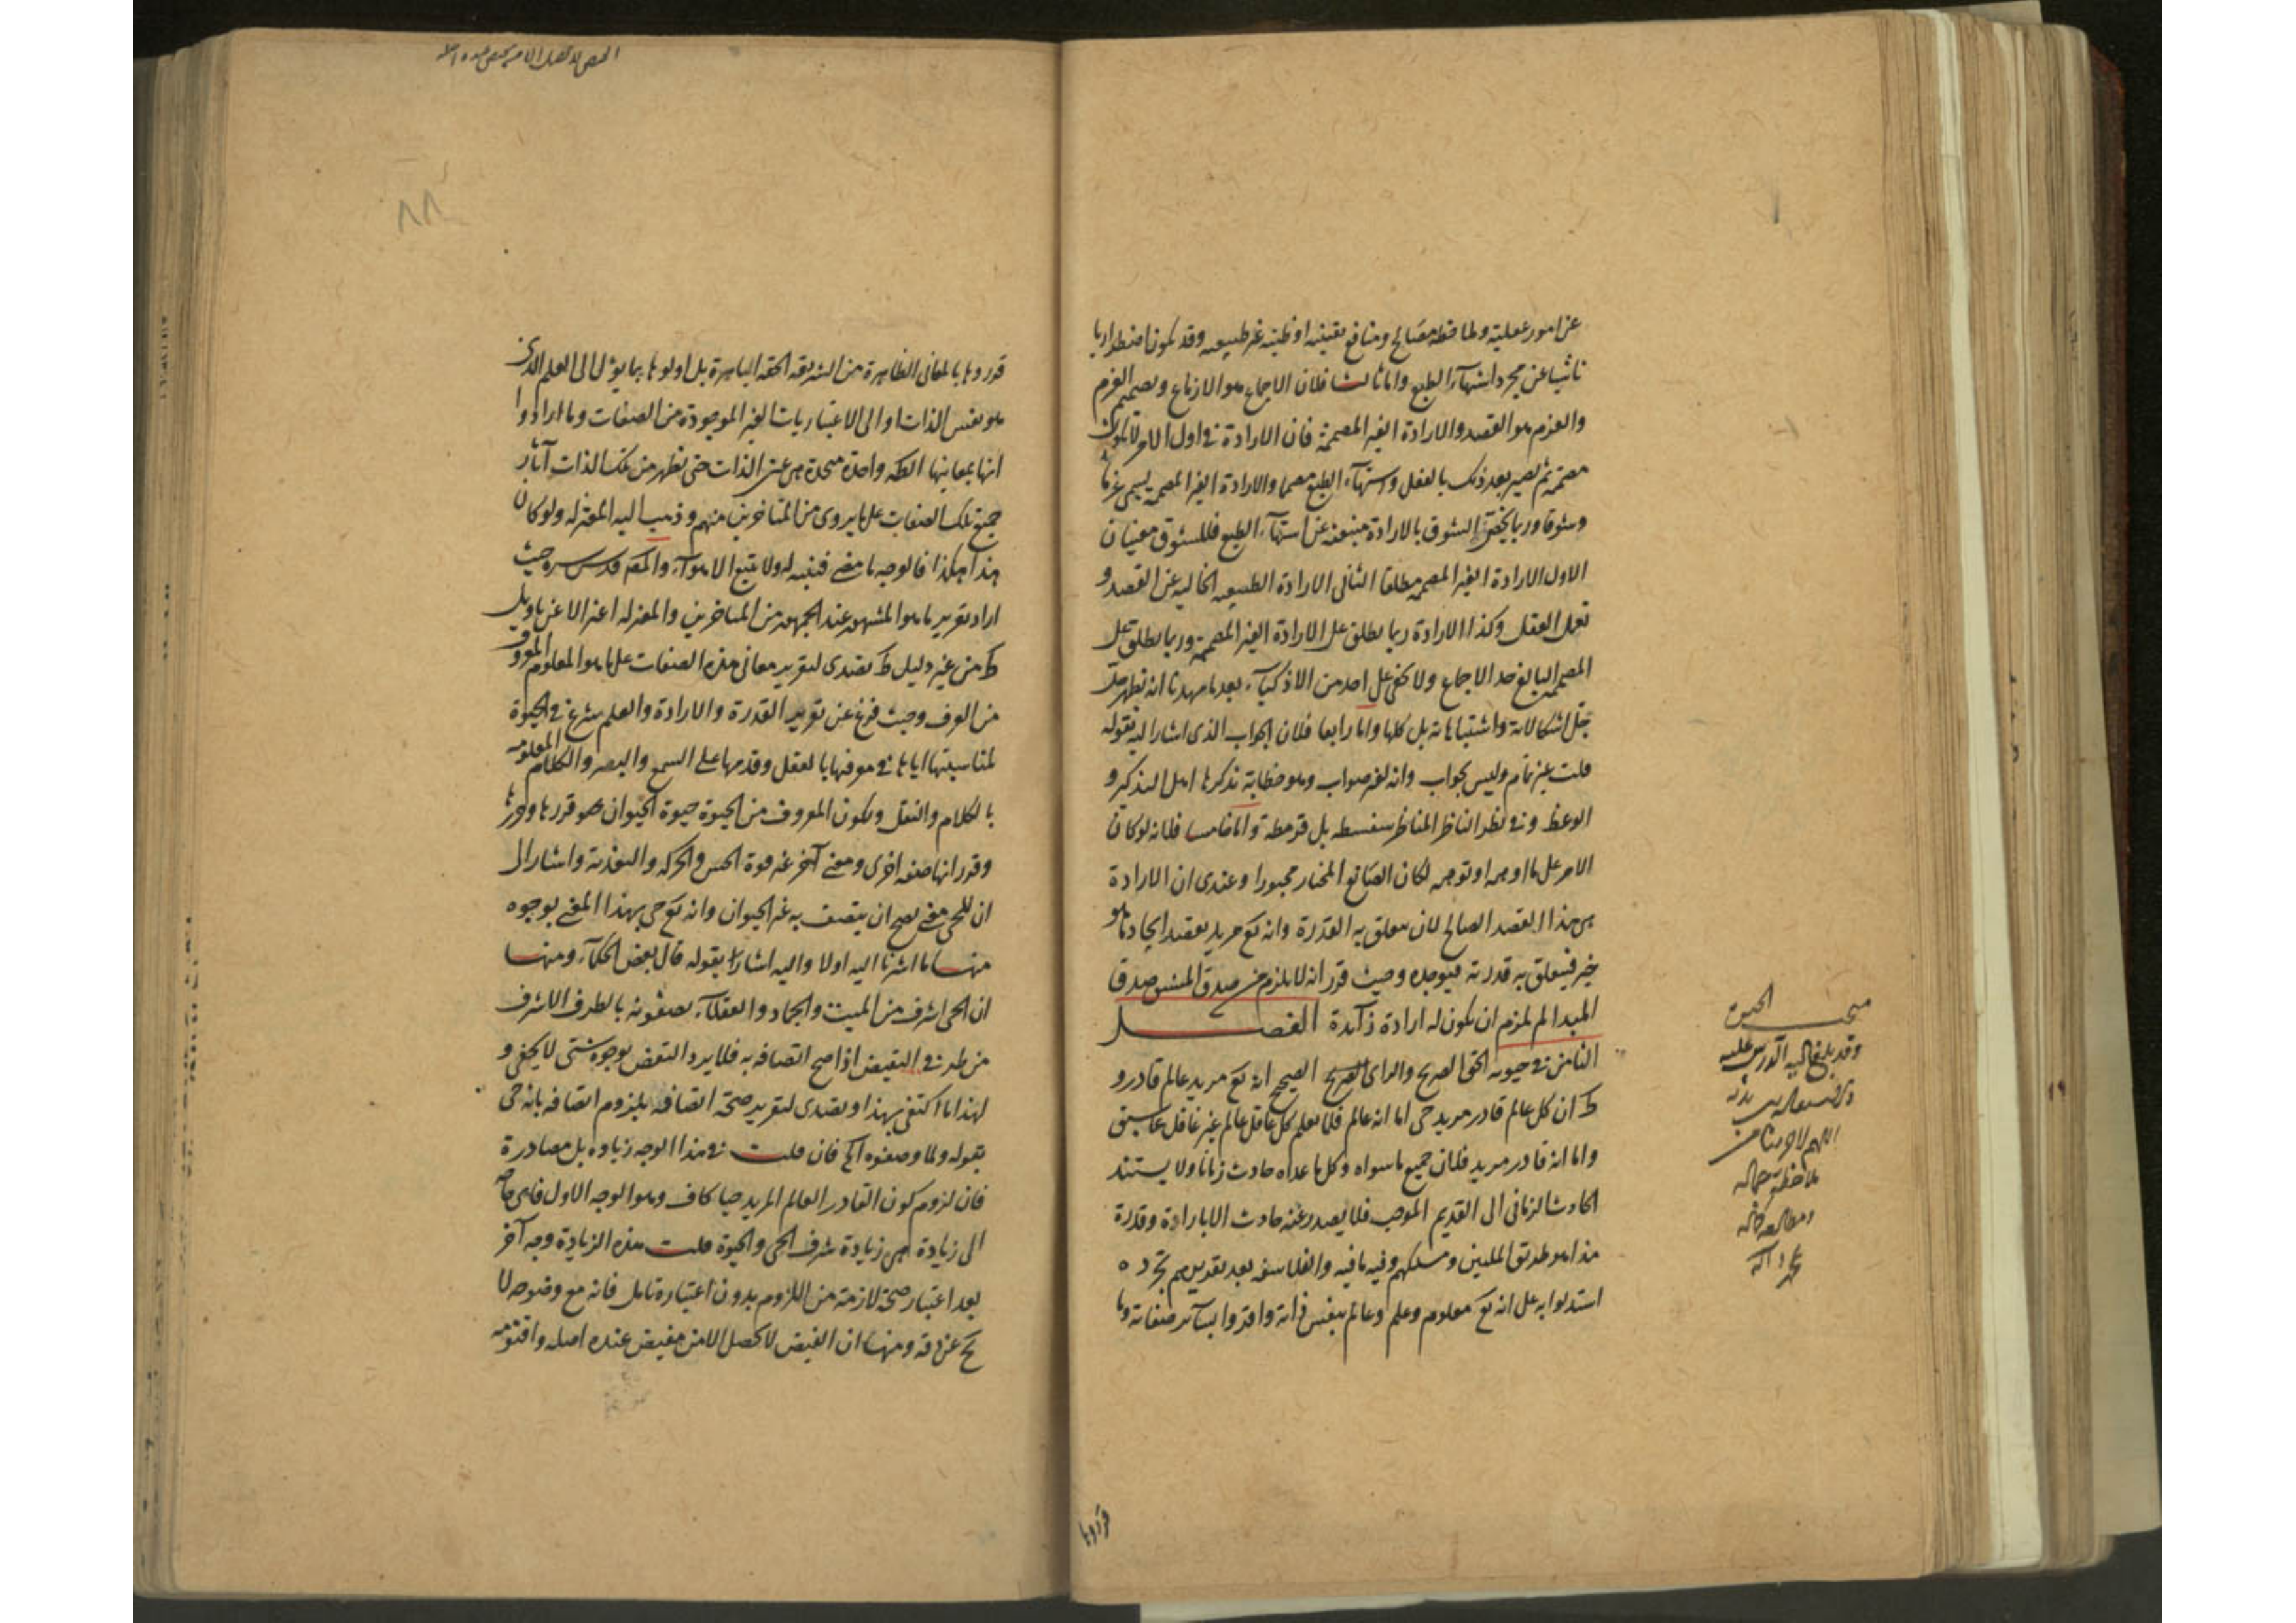 عن امور عقلية ولملاحظة مصالح ومنافع يقينية او ظنية غير طبيعية وقد يكون اضطراريا
ناشيا عن مجرد اشتهاء الطبع واما ثالثا فلان الاجماع هو الازماع وتصميم العزم
والعزم هو القصد والارادة الغير المصممة فان الارادة في اول الامر لا تكون
مصممة ثم تصير بعد ذلك بالعقل واشتهاء الطبع مصمما والارادة الغير المصممة يسمى عزما
وشوقا وربما يختص الشوق بالارادة منبعثة عن اشتهاء الطبع فللشوق معنيان
الاول الارادة الغير المصممة مطلقا الثانى الارادة الطبيعية الخالية عن القصد و
تعمل العقل وكذا الارادة ربما يطلق على الارادة الغير المصممة وربما يطلق على
المصمم البالغ حد الاجماع ولا يخفى على احد من الاذكياء بعد ما مهدنا انه يظهر حل
جل اشكالاته واشتباهاته بل كلها واما رابعا فلان الجواب الذى اشار اليه بقوله
قلت غير تام وليس بجواب وانه لغير صواب وهو خطابة تذكرها اهل التذكير و
الوعظ وفي نظر الناظر المناظر سفسطه بل قرمطة واما خامسا فلانه لو كان
الامر على ما اوهمه او توهمه لكان الصانع المختار مجبورا وعندى ان الارادة
هى هذا القصد الصالح لان يتعلق به القدرة وانه تع مريد يقصد ايجاد ما هو
خير فيتعلق به قدرته فيوجده وحيث قرر انه لا يلزم من صدق المشتق صدق
المبدا لم يلزم ان يكون له ارادة زائدة الفصل
الثامن في حيوته الحق الصريح والراى الصحيح انه تع مريد عالم قادر و
كل ان كل عالم قادر مريد حى اما انه عالم فلما يعلم كل عاقل عالم غير غافل عما سبق
واما انه قادر مريد فلان جميع ما سواه وكل ما عداه حادث زمانا ولا يستند
الحادث الزمانى الى القديم الموجب فلا يصدر عنه حادث الا بارادة وقدرة
هذا هو طريق المليين ومسلكهم وفيه ما فيه والفلاسفة بعد تقديرهم تجرده
استدلوا به على انه تع معلوم وعلم وعالم بنفس ذاته واقروا بسائر صفاته وما
قرروها
قرروها بالمعانى الظاهرة من الشريعة الحقة الباهرة بل اولوها بما يؤل الى العلم الذى
هو نفس الذات او الى الاعتباريات الغير الموجودة من الصفات وما ارادوا
انها بمعانيها واحدة متحدة هى عين الذات حتى تظهر من تلك الذات آثار
جميع تلك الصفات على ما يروى من المتاخرين منهم وذهب اليه المعتزلة ولو كان
هذا هكذا فالوجه ما مضى فتنبه له ولا تتبع الاهواء والمص قدس سره حيث
اراد تقرير ما هو المشهور عند الجمهور من المتاخرين والمعتزلة
من غير دليل تصدى لتقرير معانى هذه الصفات على ما هو المعلوم المعروف
من العرف وحيث فرغ عن تقرير القدرة والارادة والعلم شرع في الحيوة
لمناسبتها اياها في معرفتها بالعقل وقدمها على السمع والبصر والكلام المعلومة
بالكلام والنقل ولكون المعروف من الحيوة حيوة الحيوان قررها
وقرر انها صفة اخرى ومعنى آخر غير قوة الحس والحركة والتغذية واشار الى
ان للحى معنى يصح ان يتصف به غير الحيوان وانه تع حى بهذا المعنى بوجوه
منها ما اشرنا اليه اولا واليه اشار بقوله قال بعض الحكماء ومنها
ان الحى اشرف من الميت والجماد والعقلاء يصفونه بالطرف الاشرف
من طرفى النقيض اذا صح اتصافه به فلا يرد النقض بوجوه شتى لا يخفى و
لهذا ما اكتفى بهذا وتصدى لتقرير صحة اتصافه بلزوم اتصافه بانه حى
بقوله ولما وصفوه الخ فان قلت في هذا الوجه زيادة بل مصادرة
فان لزوم كون القادر العالم المريد حيا كاف وهو الوجه الاول فاى حاجة
الى زيادة هى زيادة شرف الحى والحيوة قلت هذه الزيادة وجه آخر
بعد اعتبار صحة لازمة من اللزوم بدون اعتباره تامل فانه مع وضوحه لا
يخ عن دقة ومنها ان الفيض لا يحصل الا من مفيض عنده اصله واقنومه
٨٨